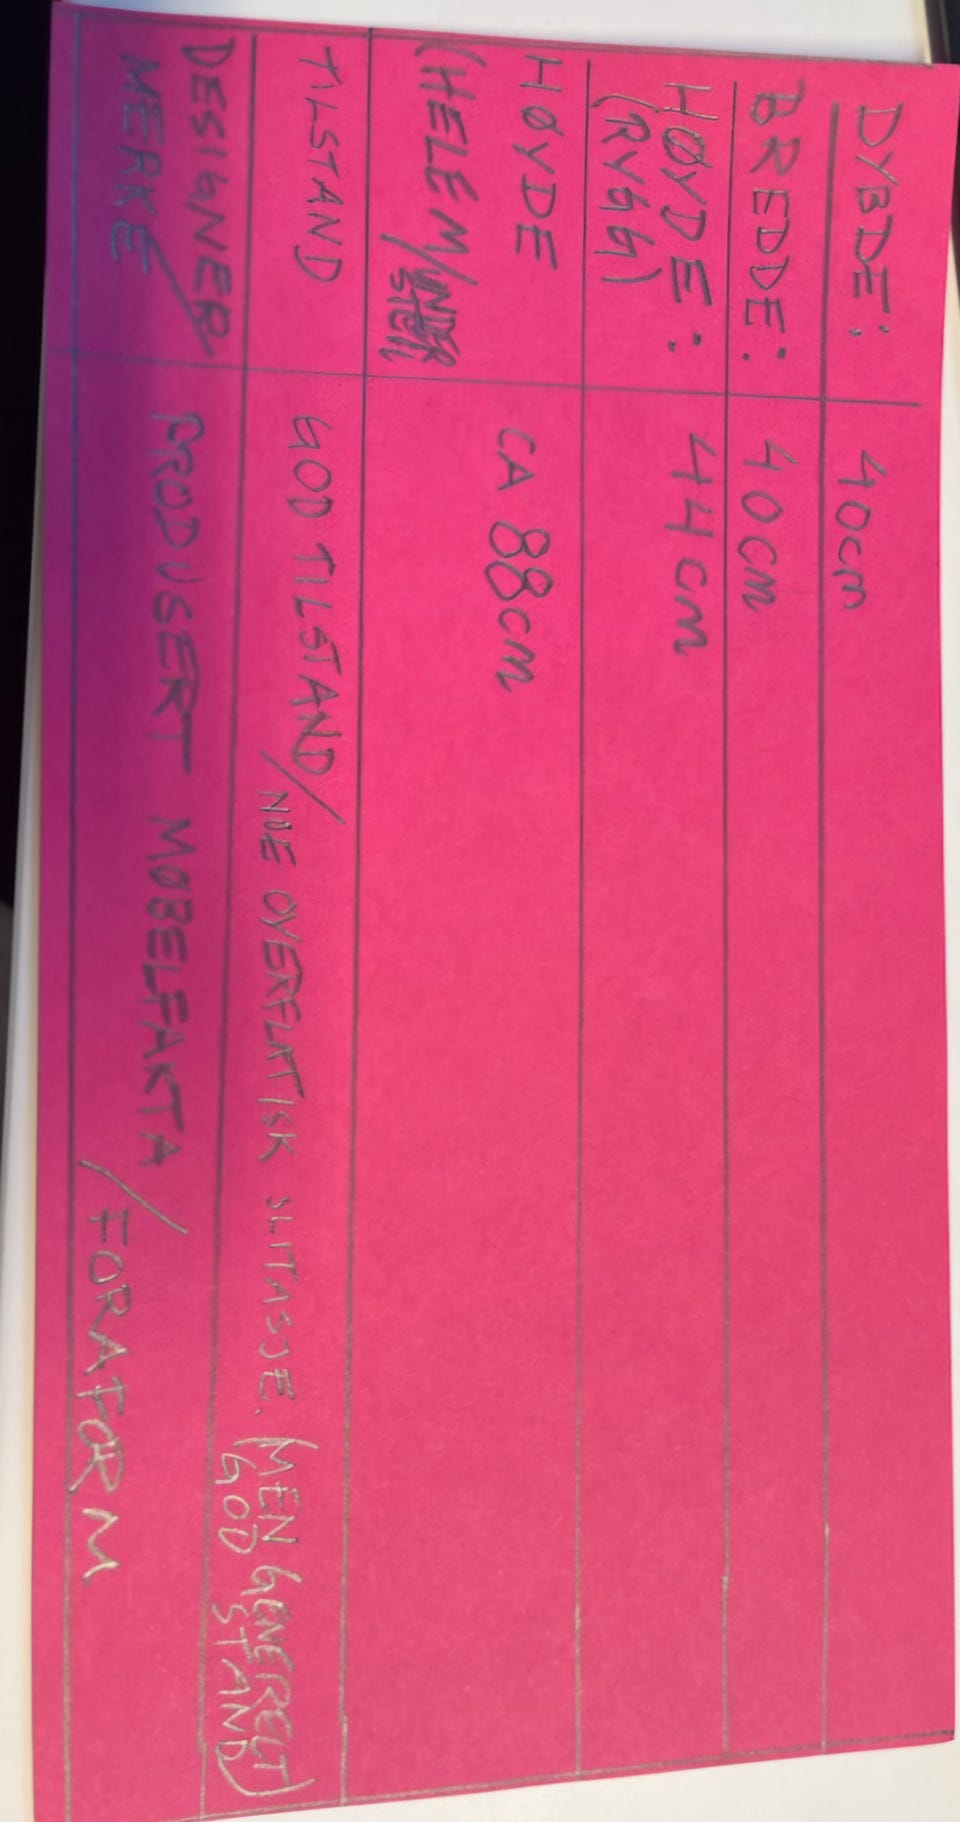 DYBDE: 40cm
BREDDE: 40cm
HØYDE: 44cm
(RYGG)
HØYDE CA 88cm
(HELE M/UNDER
STELL
TILSTAND GOD TILSTAND/
NOE OVERFLATISK SLITASJE. (MEN GENERELT
GOD STAND)
DESIGNER/ PRODUSERT MØBELFAKTA
MERKE /FORAFORM